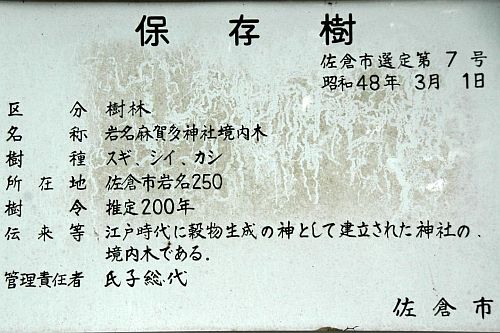 保存樹
佐倉市選定第7号
昭和48年3月1日
区分 樹林
名称 岩名麻賀多神社境内木
樹種 スギ、シイ、カシ
所在地 佐倉市岩名250
樹令 推定200年
伝来等 江戸時代に穀物生成の神として建立された神社の、
境内木である.
管理責任者 氏子総代
佐倉市